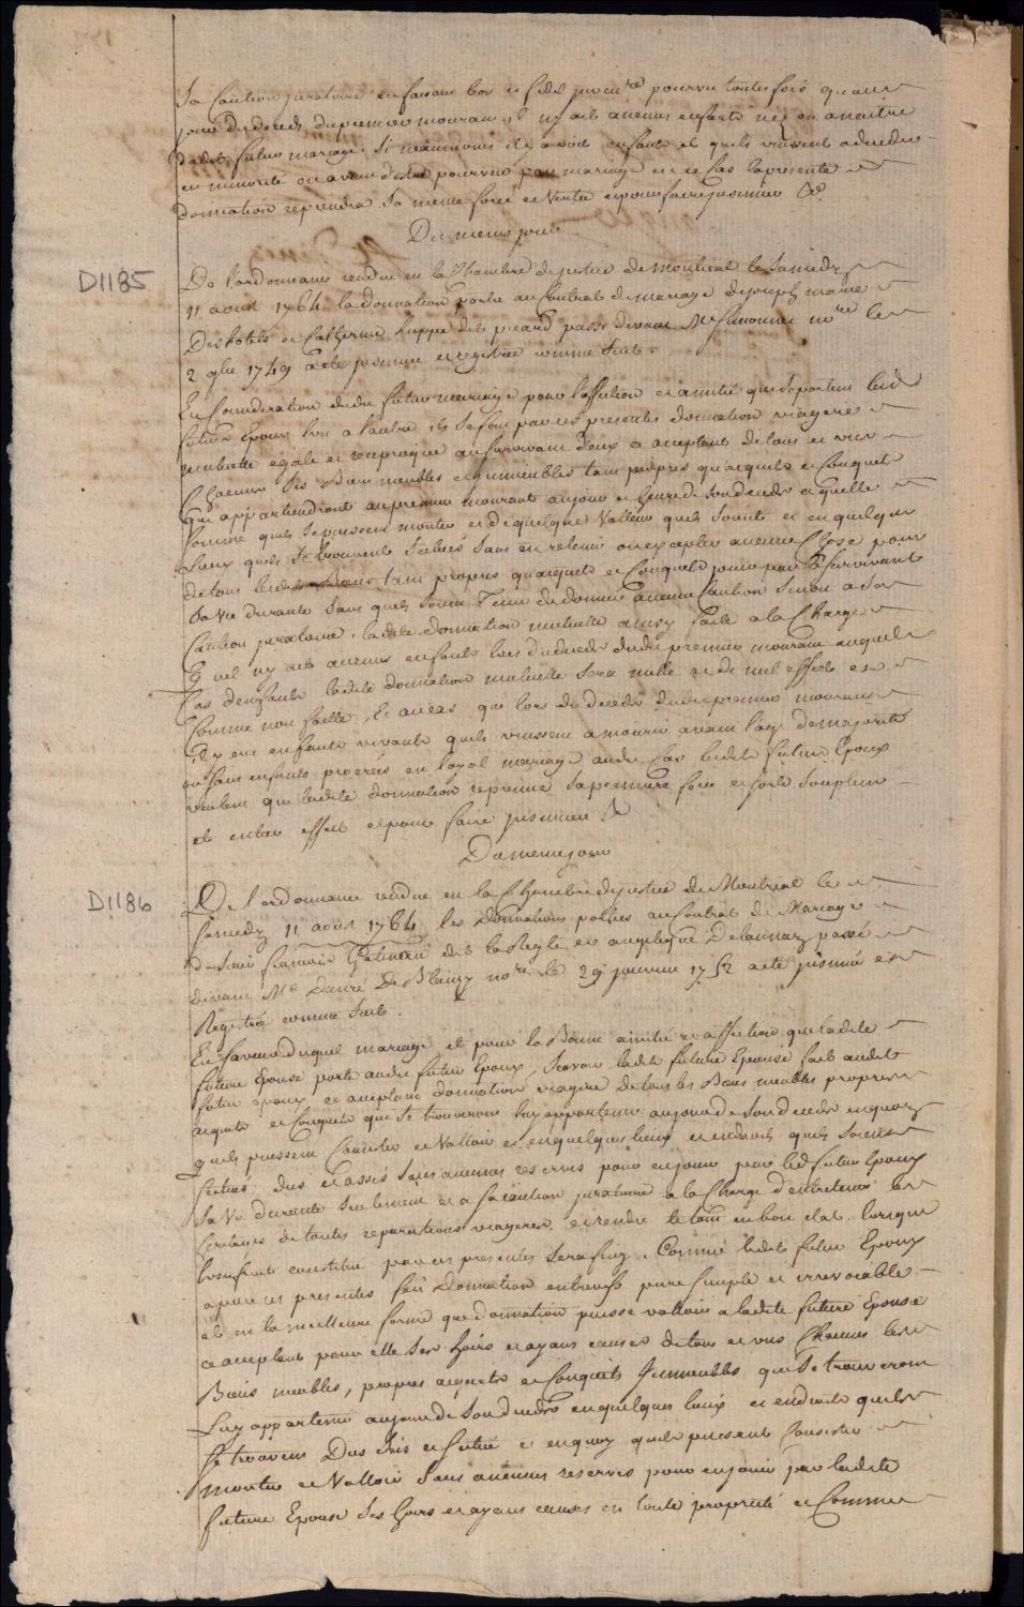 Sa Caution juratoire en faisant bon et fidel inventre pourvu toutes fois qu'au
jour du deceds du premier mourant il n'y ait aucuns enfants nez ou a naitre
dudit futur mariage. Si neanmoins il y avoit enfants et quils vinssent a deceder
en minorité ou avant d'estre pourvus par mariage en ce Cas la presente
donnation reprendra Sa meme force et Vertu et pour faire insinuer &a
Du meme jour
D1185
De l'ordonnance rendue en la Chambre de justice de Montreal le Samedy
11 aoust 1764 la donnation portée au Contrat de mariage de joseph
Deshotels et Catherine huppé dit picard passé devant Me Simonnet nore le
2 9bre 1749 a eté insinuée et registrée comme Suit.
En Consideration dudit futur mariage pour l'affection et amitié que se portent lesd
futurs Epoux l'un a l'autre ils se font par ces presentes donnation viagere
mutuelle egale et reciproque au Survivant d'eux ce acceptant de tous et un
Chacuns les Biens meubles et immeubles tant propres qu'acquets et Conquets
qui appartiendront au premier mourant au jour et heure de son deceds a quelle
Somme quils se puissent monter et de quelque Valleur quils soient et en quelques
Lieux quils se trouvent scitués sans en retenir ou excepter aucune Chose pour
de tous lesdits Biens tant propres qu'acquets et Conquets jouir par le Survivant
Sa vie durante sans quils soient Tenu de donner aucune Caution sinon a Sa
Caution juratoire. ladite donnation mutuelle ainsy faite a la Charge
Qu'il n'y ait aucuns enfants lors du deceds dudit premier mourant auquel
Cas d'enfants ladite donnation mutuelle sera nulle et de nul effet et
Comme non faitte, Et au cas que lors du deceds dudit premier mourant
il y eut enfants vivants quils vinssent a mourir avant l'age de majorité
ou sans enfants procréés en loyal mariage audit Cas lesdits futurs Epoux
veulent que ladite donnation reprenne sa premiere force et sorte son plein
et entier effet et pour faire insinuer &a
Du meme jour
D1186
De l'ordonnance rendue en la Chambre de justice de Montreal le
Samedy 11 aoust 1764 les Donnations portées au Contrat de Mariage
de francois Gatineau dit la Regle et angelique Delaunay passé
devant Me danré De Blanzy nore le 29 janvier 1752 a eté insinué et
Registré comme Suit.
En faveur duquel mariage et pour la Bonne amitié et affection que ladite
future Epouse porte audit futur Epoux, Scavoir ladite future Epouse fait audit
futur Epoux ce acceptant donnation viagere de tous les Biens meubles propres
acquets et Conquets qui se trouveront luy appartenir au jour de son deceds en quoy
quils puissent Consister et Valloir et en quelques lieux et endroits quils soient
scitués dus et assis sans aucunes reserves pour en jouir par led futur Epoux
Sa vie durante seulement et a sa caution juratoire a la Charge d'entretenir les
heritages de toutes reparations viageres et rendre le tout en bon etat lorsque
l'usufruit constitué par ces presentes sera finy. Comme ledit futur Epoux
a par ces presentes fait Donnation entrevifs pure simple et irrevocable
et en la meilleure forme que donnation puisse valloir a ladite future Epouse
ce acceptant pour elle ses hoirs et ayans causes de tous et uns Chacuns les
Biens meubles, propres acquets et Conquets immeubles qui se trouveront
Luy appartenir au jour de son deceds en quelques lieux et endroits quils
se trouvent Dus Sis et scitués et en quoy quils puissent Consister
monter et Valloir sans aucunes reserves pour en jouir par ladite
future Epouse ses hoirs et ayans causes en toute proprieté et Comme